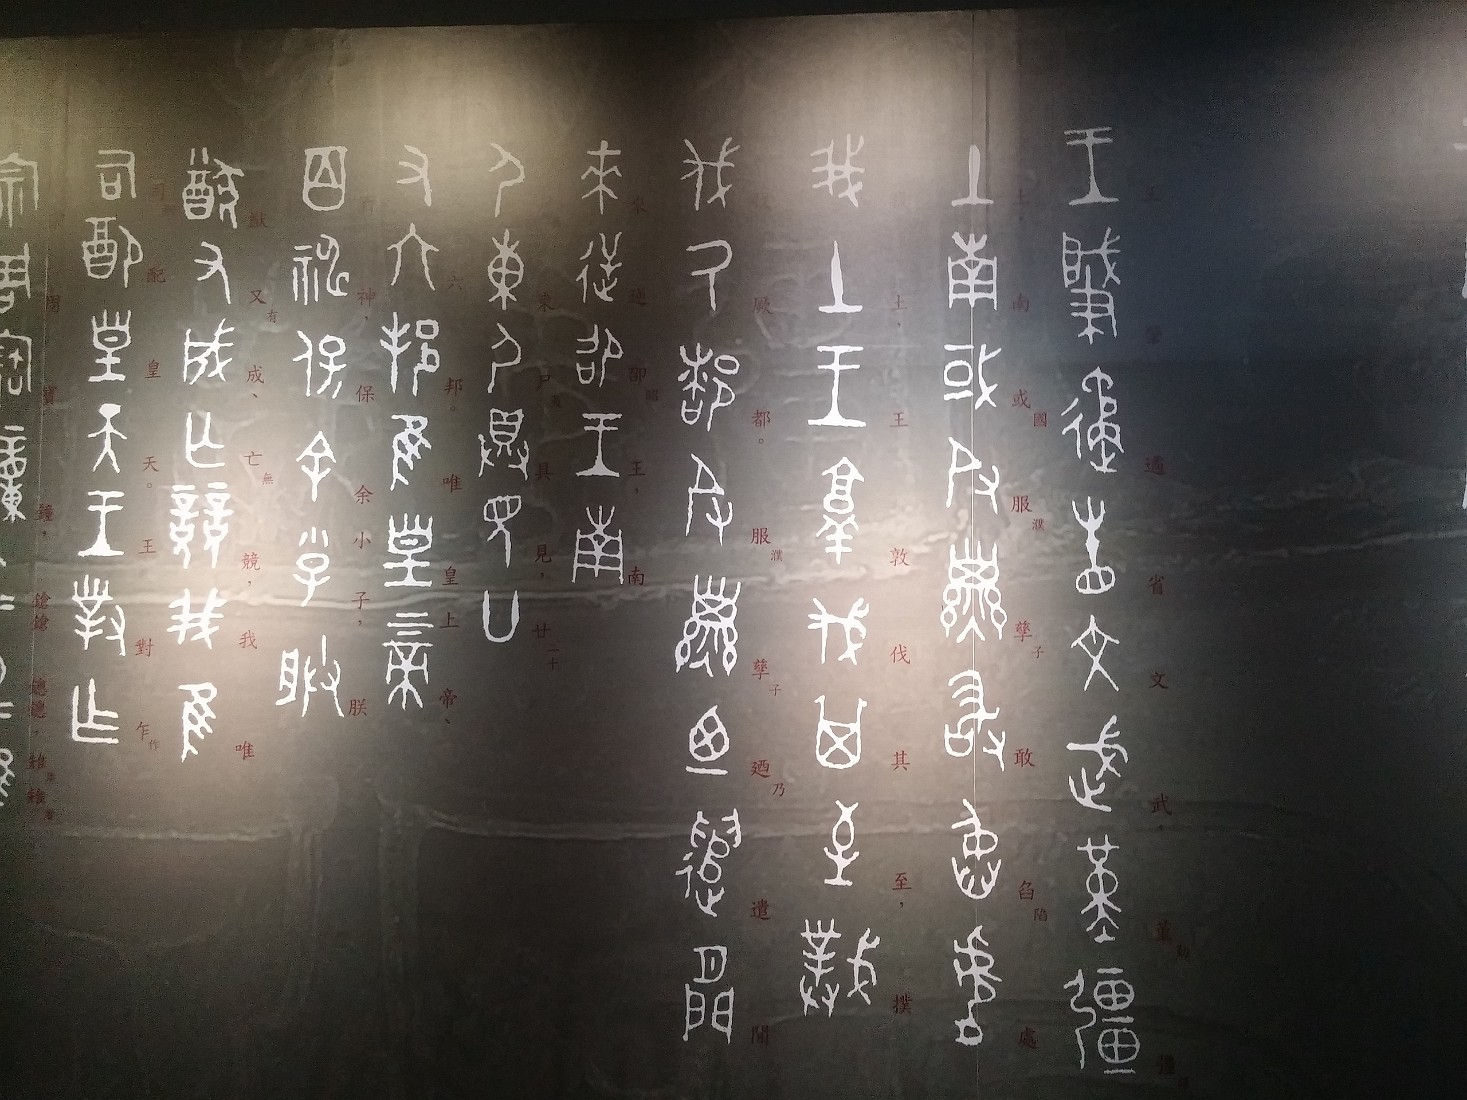 王肇遹省文武，堇勤彊
土南或國服濮孳子敢臽陷處
上，王敦伐其至，撲
伐厥都。服濮孳子廼乃遣閒
來逆卲昭王，南
尸夷東尸夷具見，廿二十
又六邦。唯皇上帝、
百神，保余小子，朕
猷又有成、亡無競，我唯
司配皇天。王對乍作
宗周寶鐘，鎗鎗